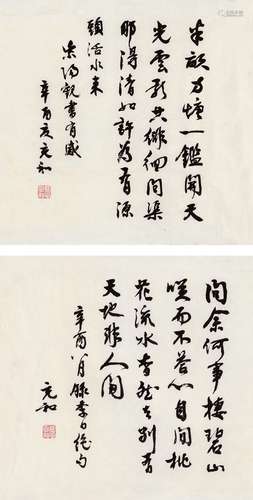 半畝方塘一鑑開天
光雲影共徘徊問渠
那得清如許為有源
頭活水来
觀書有感
辛酉夏元和
問余何事棲碧山
咲而不荅心自閒桃
花流水杳然去別有
天地非人間
辛酉八月録李白絕句
元和